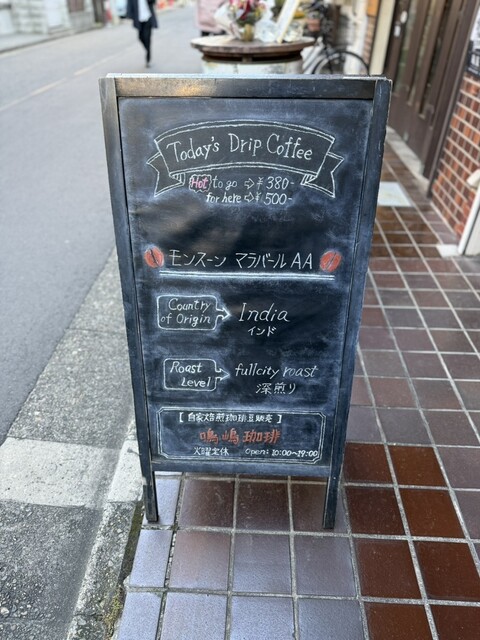 Today's Drip Coffee
Hot to go ⇨¥380-
for here⇨¥500-
モンスーン マラバールAA
Country of Origin
India
インド
Roast Level
fullcity roast
深煎り
[自家焙煎珈琲豆販売]
鳴嶋珈琲
火曜定休 Open: 10:00~19:00